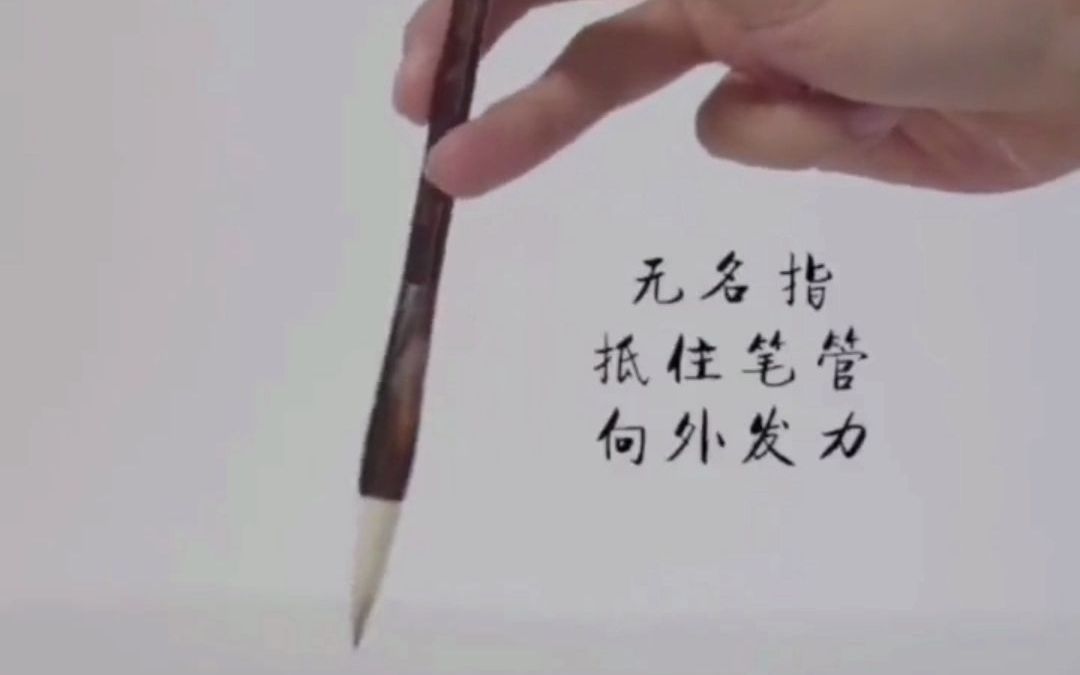 无名指
抵住笔管
向外发力